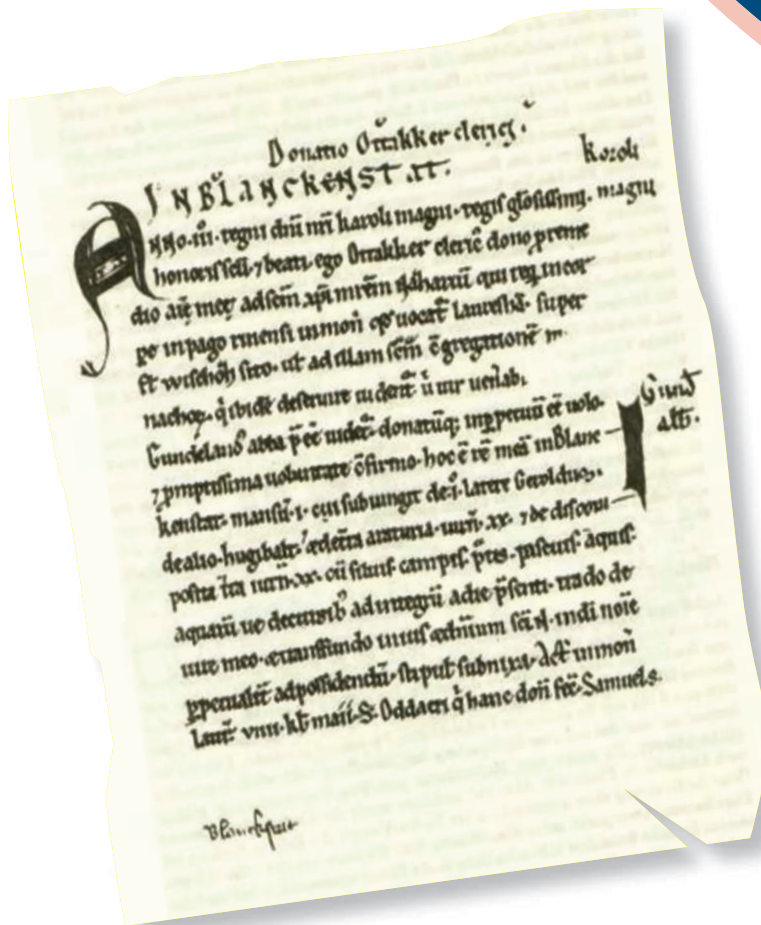 Donatio Ottakker cleric̄.
karoli
IN BLANCKENSTAT.
magni
Anno .iii. regni dn̄i nr̄i karoli magni. regis gl̄osissimi.
honoris sc̄i. ⁊ beati. ego Ottakker cleric̄ dono p̱ reme
dio aīe meę ad sc̄m
qui req̄. in cor
pe in pago rinensi in mon̄ qd̄ uocat̄ Laureshā. super
fl̄ wischoz̄ sito. ut ad illam sc̄m c̄gregationē
nachoꝝ. q̄ ibidē deseruire uident̄. ū uir uen̄ab.
Gund
Gundelano abba p̄ ēē uidet̄. donatūq; in p̱petuū ēē uolo.
abb̄.
⁊ p̱mptissima uoluntate c̄firmo. hoc ē rē meā in Blanc
kenstat. mansū .i. cui subiungit de .i. latere Geroldus.
de alio. Hugibalt.
araturia. iurn̄. xx. ⁊ de discoop̱
posita t̄ra iurn̄ .xx. cū
campis. p̄tis. pascuis. aquis.
aquarū ue decursib; ad integrū a die p̄senti. trado de
iure meo. ⁊ transfundo in ius ⁊ dn̄ium sc̄i N. in di noīe
p̱petualit̄ ad possidendū. stipul̄ subnixa. Act̄ in mon̄
Laur̄. viiii. kl̄ maii. S. Oddacri q̄ hanc don̄ fec̄. Samuels.
Blanckstat